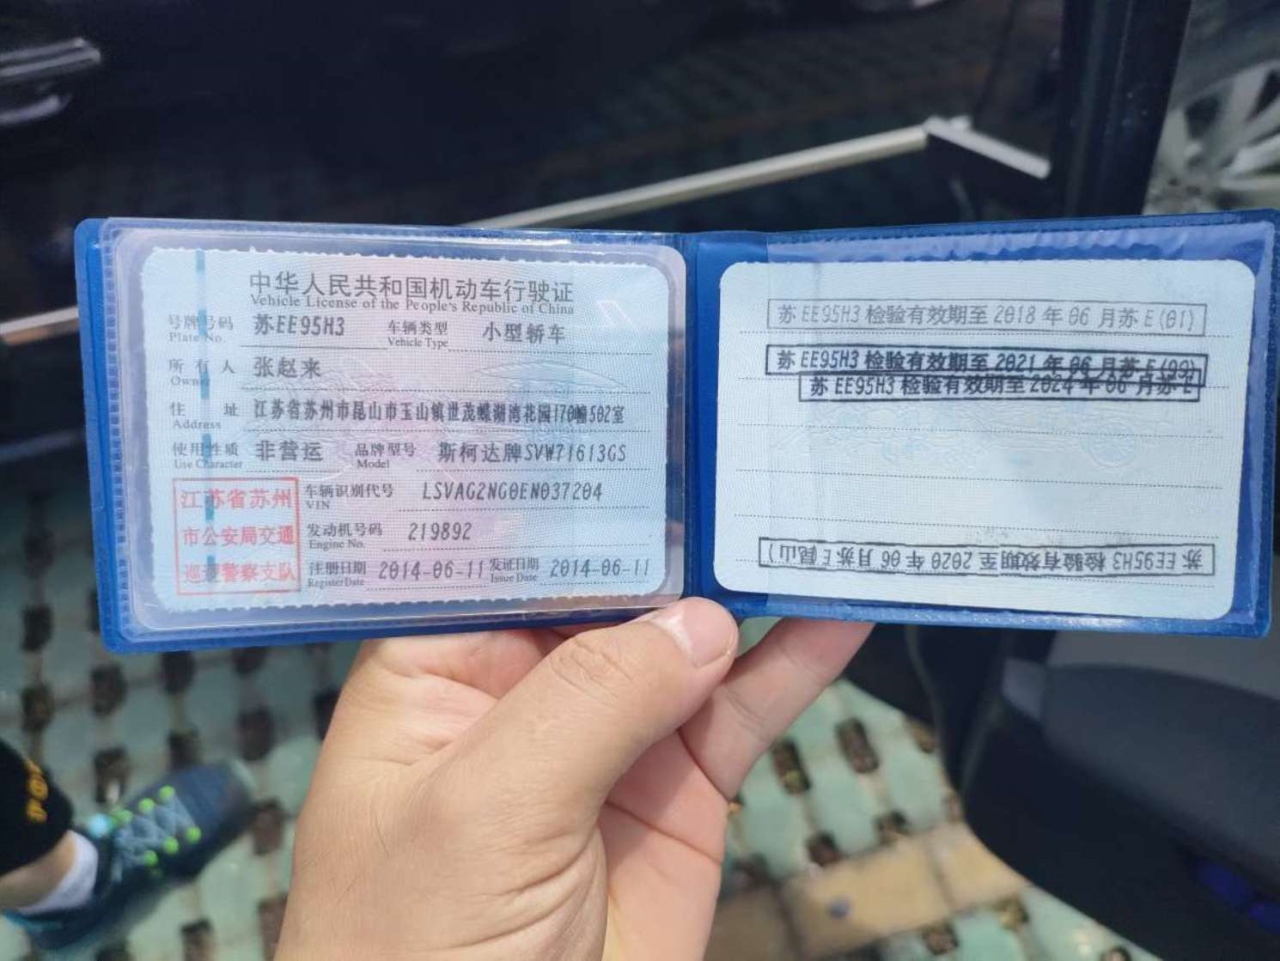 中华人民共和国机动车行驶证
Vehicle License of the People's Republic of China
号牌号码 苏EE95H3 车辆类型 小型轿车
Plate No. Vehicle Type
所有人 张赵来
Owner
住址 江苏省苏州市昆山市玉山镇世茂蝶湖湾花园170幢502室
Address
使用性质 非营运 品牌型号 斯柯达牌SVW71613GS
Use Character Model
江苏省苏州
市公安局交通
巡逻警察支队
车辆识别代号 LSVAG2NG0EN037204
VIN
发动机号码 219892
Engine No.
注册日期 2014-06-11 发证日期 2014-06-11
Register Date Issue Date
苏EE95H3 检验有效期至 2018 年 06 月苏 E(01)
苏 EE95H3 检验有效期至 2021 年 06 月苏 E(99)
苏 EE95H3 检验有效期至 2024 年 06 月苏 E
苏 EE95H3 检验有效期至 2020 年 06 月苏 E(昆山)